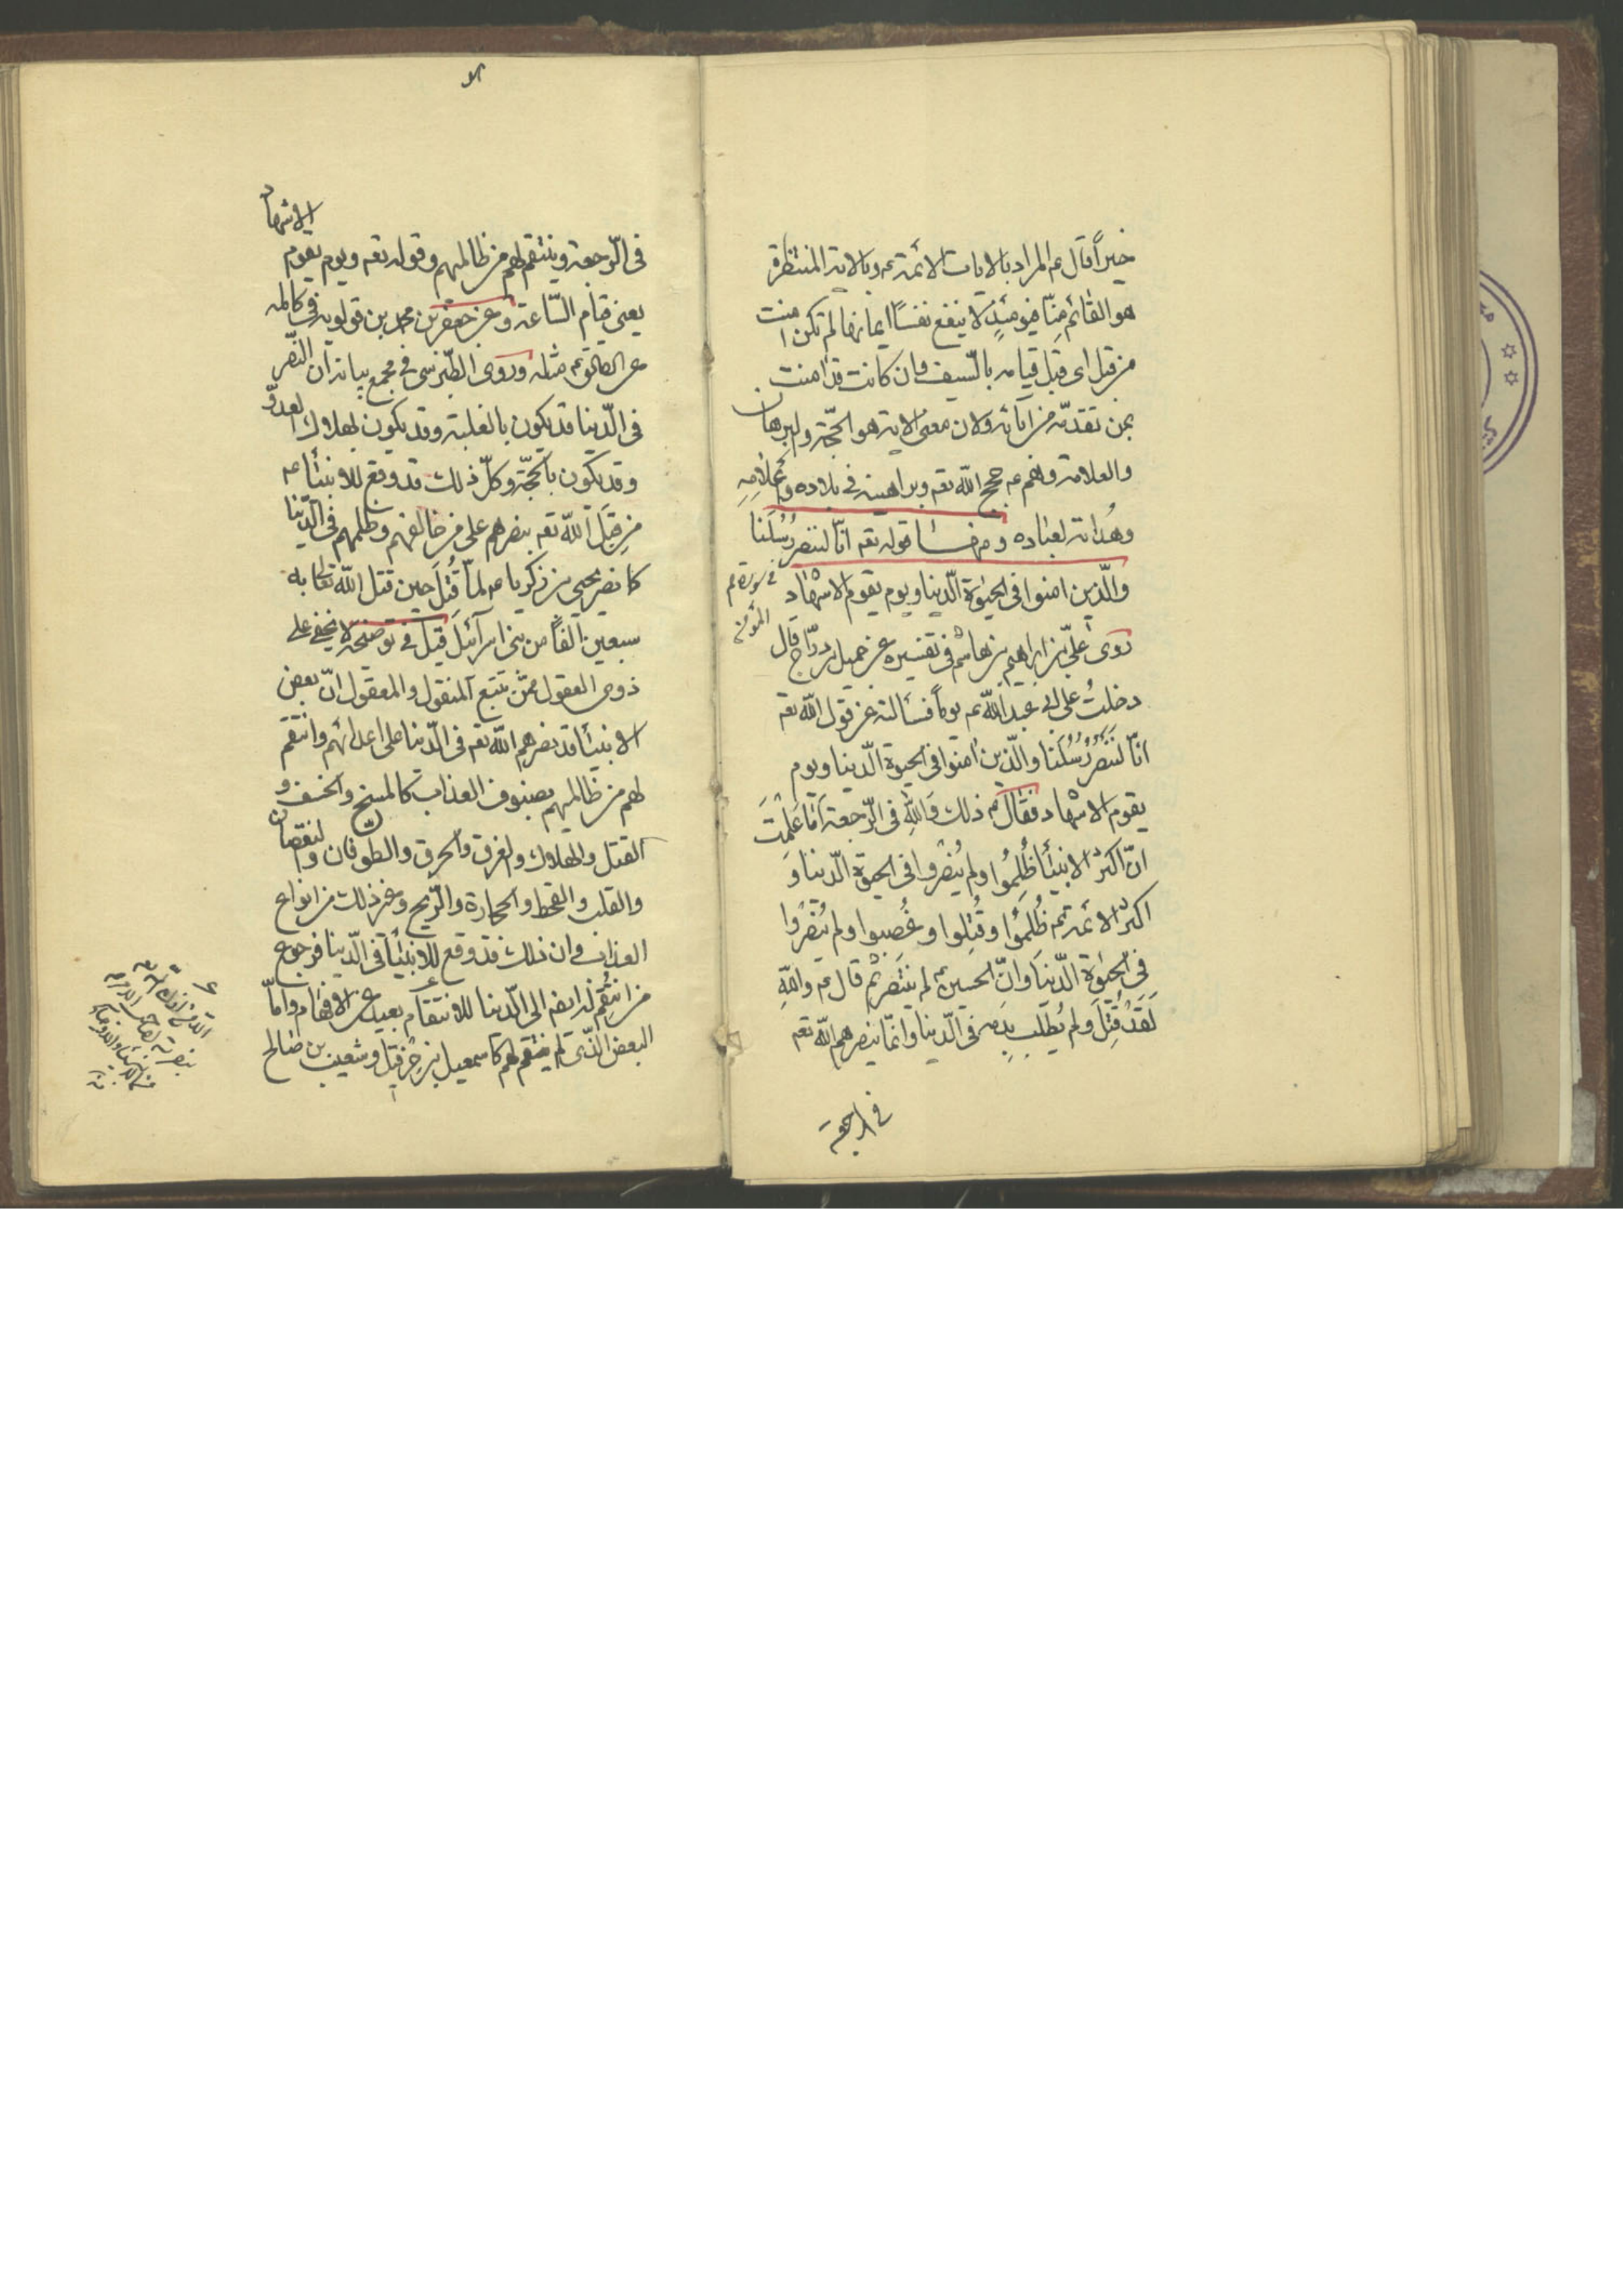 خيراً قال ع المراد بالايات الائمة ع وبالاية المنتظرة
هو القائم منّا فيومئذٍ لا ينفع نفساً ايمانها لم تكن امنت
من قبل اى قبل قيامه بالسيف وان كانت قد امنت
بمن تقدّمه من آبائه ولان معنى الاية هو الحجّة والبرهان
والعلامة وهم ع حجج الله تعه وبراهينه فى بلاده و
وهُداته لعباده ومنها قوله تعه انّا لننصر رُسُلَنا
والّذين امنوا فى الحيوة الدّينا ويوم يقوم الاشهاد
فى سورة
المؤمن
روى علىّ بن ابراهيم بن هاشم فى تفسيره عن جميل بن درّاج قال
دخلتُ على ابى عبد الله ع يوماً فسألته عن قول الله تعه
انّا لَنَنصُرُ رُسُلَنا والّذين امنوا فى الحيوة الدّينا ويوم
يقوم الاشهاد فقال ع ذلك وَاللهِ فى الرّجعة اَمَا عَلِمْتَ
انّ اكثر الانبيأ ظُلِمُوا ولم يُنْصَرُوا فى الحيوة الدّينا وَ
اكثر الائمة ع ظُلِمُوا وقُتِلوا وغُصبوا ولم يُنْصَرُوا
فى الحيوة الدّينا وَانّ الحسين ع لم يَنْتَصِر ثم قال ع واللهِ
لَقَدْ قُتِلَ ولم يُطلب بِدَمِهِ فى الدّينا وانّما ينصرهم الله تعه
فى الرجعة
الاشهاد
فى الرّجعة وينتقم لهم من ظالمهم وقوله تعه ويوم يقوم
يعنى قيام السّاعة وعن جعفر بن محمد بن قولويه فى كامله
عن الصادق ع مثله وروى الطّبرسى فى مجمع بيانه ان النّصر
فى الدّينا قد يكون بالغلبة وقد يكون بهلاك العدوّ
وقد يكون بالحجّة وكلّ ذلك قد وقع للانبيأ ع
من قِبَل الله تعه بنصرهم على من خالفهم وظلمهم فى الدّينا
كما نصر يحيى بن زكريا ع لمّا قُتِلَ حين قتل الله تعالى به
سبعين الفاً من بنى اسرآئيل قيل فى توضيحه لا يخفى على
ذوى العقول ممّن تتبع المنقول والمعقول انّ بعض
الانبيأ قد نصرهم الله تعه فى الدّينا على اعدائهم وانتقم
لهم من ظالمهم بصنوف العذاب كالمسخ والخسف و
القتل والهلاك والغرق والحرق والطوفان والنقصان
والقلب والقحط والحجارة والرّيح وغير ذلك من انواع
العذاب وان ذلك قد وقع للانبيأ فى الدّينا فرجوع
من انتُقِم له ايضه الى الدّينا للانتقام بعيد عن الافهام وامّا
البعض الّذى لم ينتقم لهم كاسمعيل بن حزقيل وشعيب بن صالح